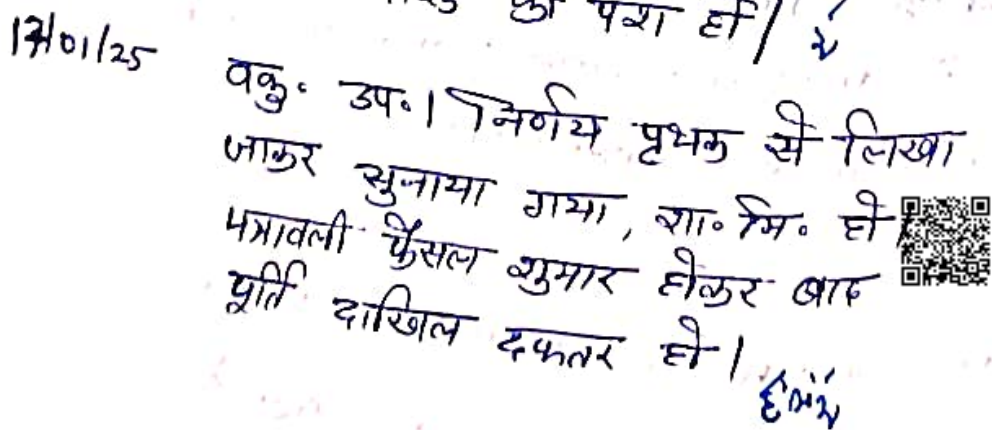 को पेश हो।
17/01/25
वकु. उप.। निर्णय पृथक से लिखा
जाकर सुनाया गया, शा. मि. हो।
पत्रावली फैसल शुमार होकर बाद
पूर्ति दाखिल दफ्तर हो।